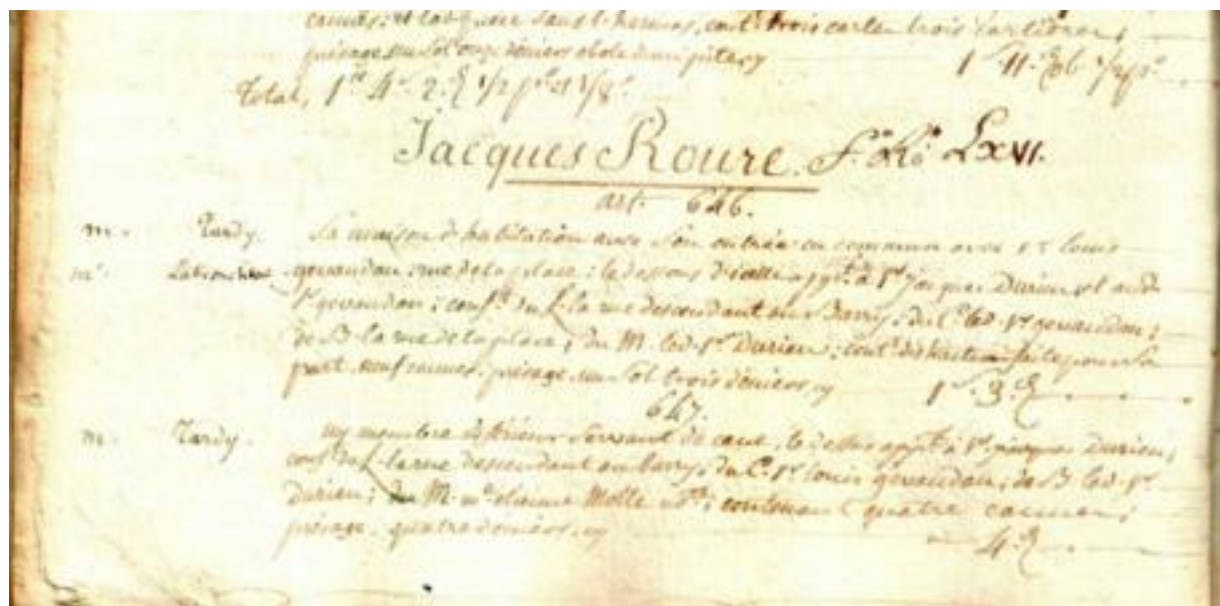 cannes; et la guere sans l. hermas, cont. trois cartes trois cartieres;
présage un sol onze déniers obole demi pite, cy 1 s. 11. d. ob. 1/2 p.
Total, 1 4 s. 2. d. 1/2 p. et 1/8.
Jacques Roure. f.° LXVI.
art. 646.
m. Tardy. Sa maison d'habitation avec son entrée en commun avec s.r louis
m. gevaudan, rue de la place: le dessous d'icelle app.t à s.r Jacques Durieu, et aud.
s.r gevaudan; conf. du L. la rue descendant au Barry, du C. led. s.r gevaudan;
de B. la rue de la place, du M. led. s.r durieu; cont. distraction faite pour sa
part neuf cannes, présage un sol trois déniers, cy 1 s. 3. d.
647.
m. Tardy. un membre inférieur servant de cave, le dessus app.t à s.r jacques durieu;
conf. du L. la rue descendant au barry, du C. s.r louis gevaudan; de B. led. s.r
durieu; du M. m.e etienne Molle; contenant quatre cannes;
présage quatre déniers, cy 4. d.